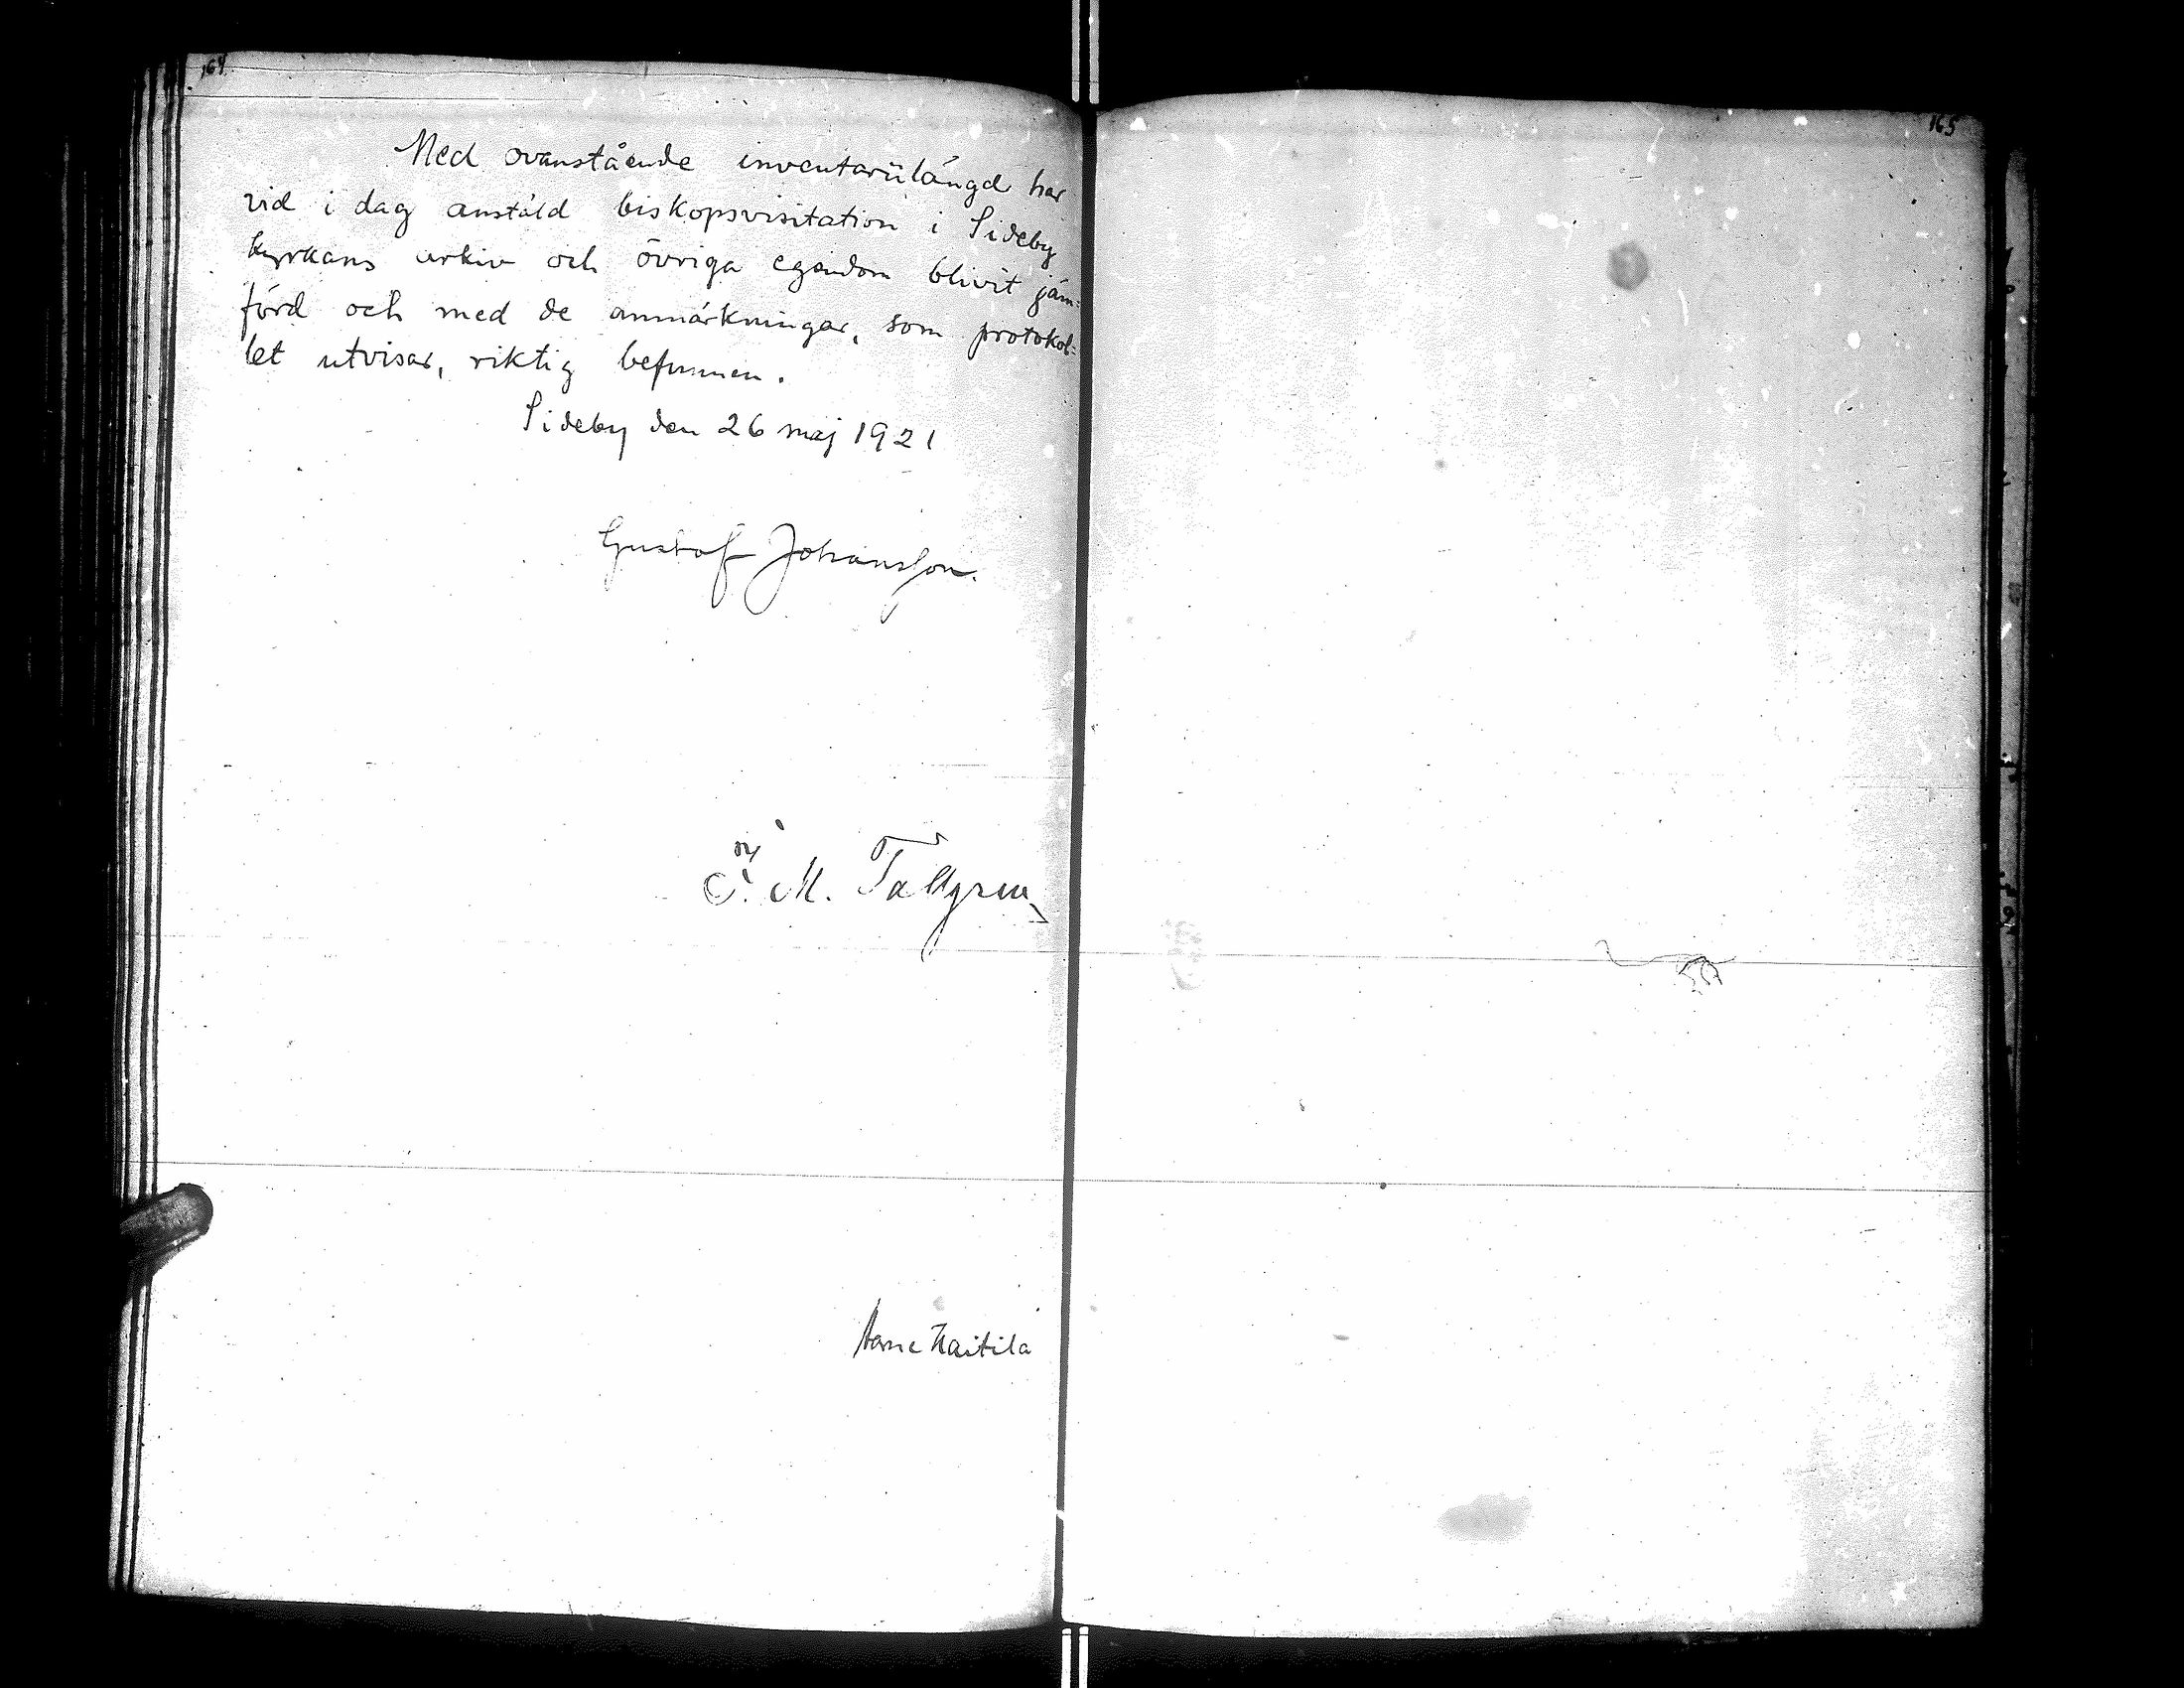 164
Med ovanstående inventariilängd har
vid i dag anstäld biskopsvisitation i Sideby
kyrkans arkiv och övriga egendom blivit jäm=
förd och med de anmärkningar, som protokol=
let utvisar, riktig befunnen.
Sideby den 26 maj 1921
Gustaf Johansson.
I. M. Tallgren
Aarne Haitila
165